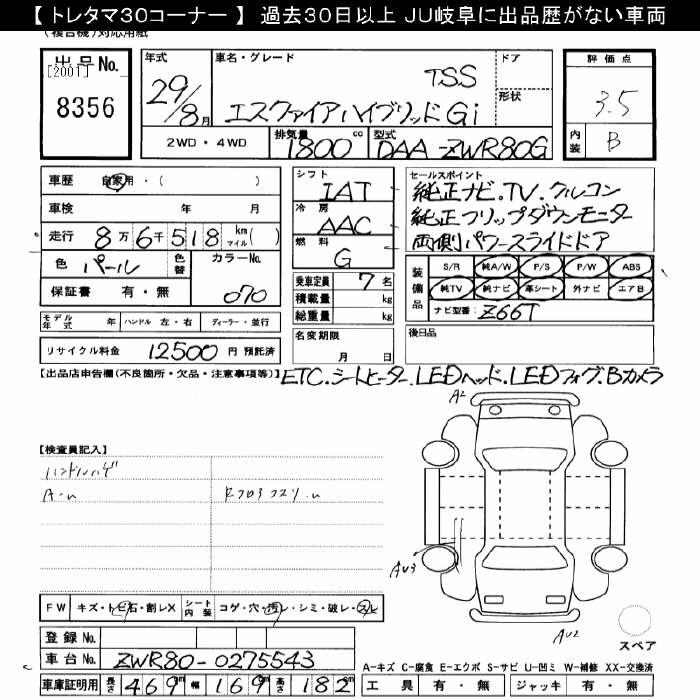 【 トレタマ30コーナー 】 過去30日以上 JU岐阜に出品歴がない車両
(複合機)対応用紙
出品No.
[2001]
8356
年式
29/8月
車名・グレード
TSS
エスクァイアハイブリッドGi
ドア
形状
評価点
3.5
内装
B
2WD・4WD
排気量
1800cc
型式
DAA-ZWR80G
車歴 自家用・( )
車検 年 月
走行 8万6千518 km マイル( )
色 パール
色替
カラーNo.
070
保証書 有・無
シフト
IAT
冷房
AAC
燃料
G
乗車定員 7名
積載量 kg
総重量 kg
セールスポイント
純正ナビ.TV.クルコン
純正フリップダウンモニター
両側パワースライドドア
装備品
S/R 純A/W P/S P/W ABS
純TV 純ナビ 革シート 外ナビ エアB
ナビ型番: Z66T
モデル年式 年 ハンドル 左・右 ディーラー・並行
名変期限
月 日
後日品
リサイクル料金 12500円 預託済
【出品店申告欄(不良箇所・欠品・注意事項等)】ETC.シートヒーター.LEDヘッド.LEDフォグ.Bカメラ
A2
【検査員記入】
ハンドルハゲ
A-u
AU3
AU2
FW キズ・トビ石・割レX シート内装 コゲ・穴・汚レ・シミ・破レ・スレ
スペア
登録No.
車台No. ZWR80-0275543
A-キズ C-腐食 E-エクボ S-サビ U-凹ミ W-補修 XX-交換済
車庫証明用 長さ 469cm 幅 169cm 高さ 182cm
工具 有・無 ジャッキ 有・無